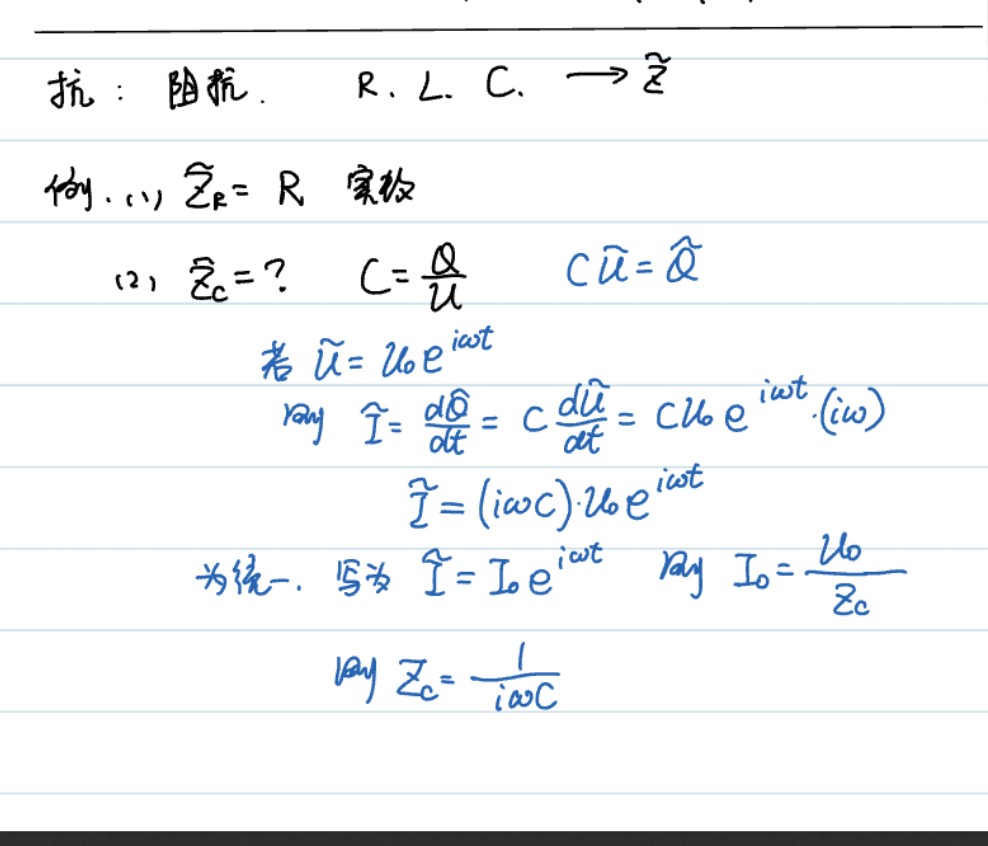 抗: 阻抗. R. L. C. → Z̃
例. (1) Z̃_R = R 实数
(2) Z̃_C = ? C = Q/U CŨ = Q̃
若 Ũ = U₀e^{iωt}
则 Ĩ = dQ̃/dt = C dŨ/dt = CU₀e^{iωt}·(iω)
Ĩ = (iωC)·U₀e^{iωt}
为统一. 写为 Ĩ = I₀e^{iωt} 则 I₀ = U₀/Z_C
则 Z_C = 1/iωC